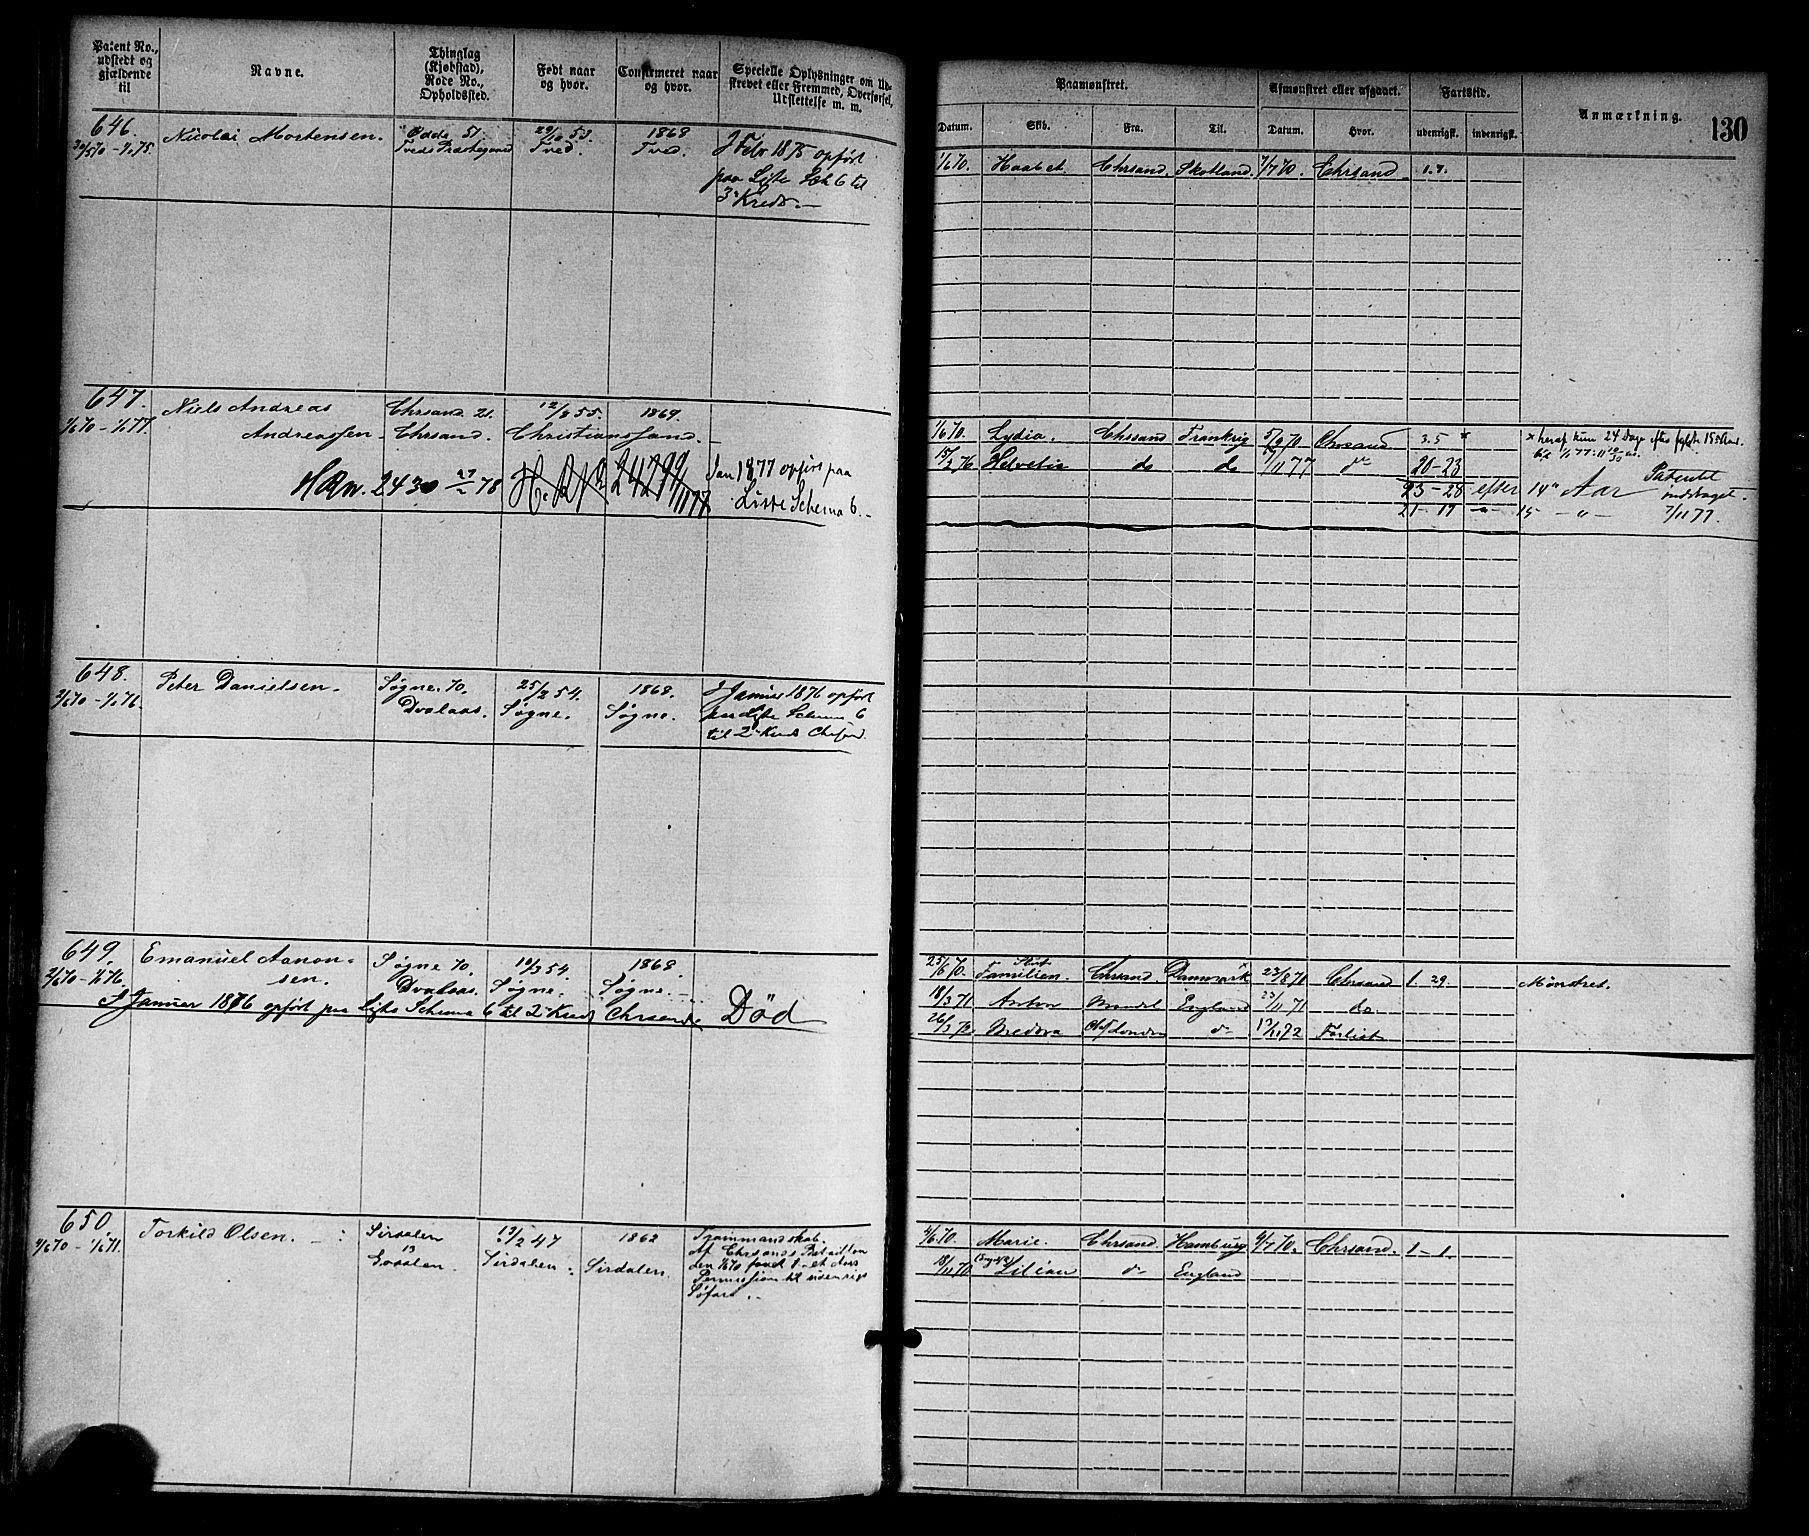 Patent No., udstedt og gjældende til
Navne.
Thinglag (Kjøbstad), Rode No., Opholdssted.
Født naar og hvor.
Confirmeret naar og hvor.
Specielle Oplysninger om Udskrevet eller Fremmed, Overførsel, Udslettelse m. m.
Paamønstret.
Afmønstret eller afgaaet.
Fartstid.
Anmærkning.
130
Datum. Skib. Fra. Til. Datum. Hvor. udenrigsk. indenrigsk.
646. Nicolai Mortensen. Odde 51. 1868 I Febr 1875 opført
Tved. Tved. paa Liste Sch 6 til
3 Kreds.
1/6 70. Haabet. Chrsand. Skotland. 7/7 70. Chrsand. 1.7.
647. Niels Andreas Chrsand 21. 12/8 55. 1869.
1/6 70 – 1/1 77. Andreassen. Chrsand. Christianssand.
HRn. 2430 78 Jan 1877 opført paa
Liste Schema 6.
1/6 70. Lydia. Chrsand Frankrig 5/9 70 Chrsand 3.5 *
15/2 76 Helvetia do do 7/11 77 do 20-23
23-28 efter 14 Aar Patentet
21-19 15 inddraget.
7/11 77.
648. Peter Danielsen. Søgne 70. 25/2 54. 1868. I Januar 1876 opført
2/6 70 – 1/1 76. Dvalaas. Søgne. Søgne. paa Liste Schema 6
til 2 Kreds
649. Emanuel Aanon= Søgne 70. 10/3 54. 1868.
2/6 70 – 1/1 76. sen. Dvalaas. Søgne. Søgne.
I Januar 1876 opført paa Liste Schema 6 til 2 Kreds Chrsand Død
25/6 70. Familien. Chrsand. Danmark 23/8 70 Chrsand 1. 29. Mønstret.
18/3 71 Anton Mandal England 23/11 71 do.
26/3 72. London do 13/11 72 Forlist
650 Torkild Olsen. Sirdalen 13/2 47 1862 Trammandskab.
4/6 70 – 1/6 71. 13 Sirdalen. Sirdalen. Af Chrsands Bataillon
den 1/6 70 faaet 1 et Aars
Permission til udenrigs
Søfart.
4/6 70. Marie. Chrsand. Hamburg 6/7 70. Chrsand. 1–1.
18/11 70 Lilian do England